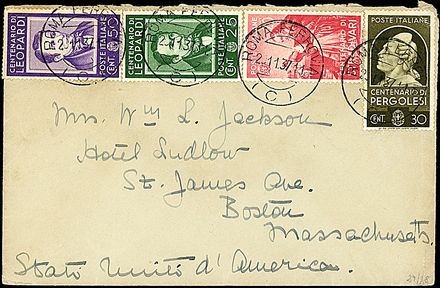 CENTENARIO DI LEOPARDI
POSTE ITALIANE
CENT. 50
CENTENARIO DI LEOPARDI
POSTE ITALIANE
CENT. 25
CENTENARIO DI
POSTE ITALIANE
CENTENARIO DI PERGOLESI
CENT. 30
ROMA FERROVIA
2.11.37
(C)
Mrs. Wm L. Jackson
Hotel Ludlow
St. James Ave.
Boston
Massachusetts.
Stato Unito d'America.